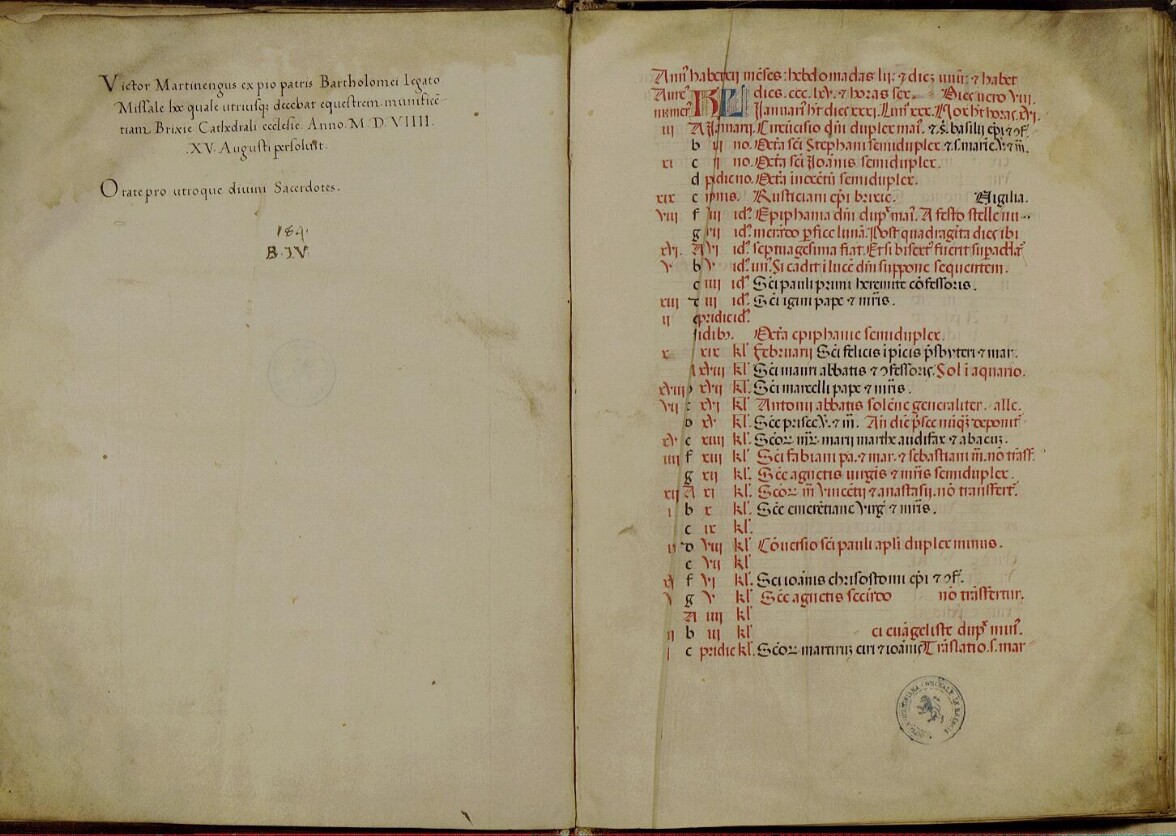 Victor Martinengus ex pio patris Bartholomei legato
Missale hoc quale utriusq; decebat equestrem munificē
tiam Brixie Cathedrali ecclesie. Anno. M. D. VIIII.
.XV. Augusti persoluit.
Orate pro utroque divini Sacerdotes.
184.
B. IV.
Ann' habet xij mēses: hebdomadas lij: ⁊ dies ⁊ habet
Aure' dies. ccc. lxv. ⁊ horas sex. Dies uero viii.
numer' KL Januari' ht dies xxxi. Lun' xxx. Nox ht horas. xvi.
iii A Januarij. Circūcisio dn̄i duplex mai. ⁊ s. basilij ep̄i ⁊ ꝯf.
b ij no. Octa sc̄i Stephani semiduplex ⁊ s. marie v. ⁊ m̄.
xi c ij no. Octa sc̄i Joānis semiduplex.
d pridie no. Octa inocētū semiduplex.
xix e nonis. Rusticiani ep̄i brixie. Vigilia.
viij f iij id' Epiphania dn̄i dup' mai. A festo stelle
g vij id' ꝑfice luna. Post quadragīta dies ibi
xvi. A vi id' septuagesima fiat. Et si bisext' fuerit
v b v id' un'. Si cadit i luce dn̄i suppone sequentem.
c iiij id' Sc̄i pauli primi heremite cōfessoris.
xiii d iii id' Sc̄i igini pape ⁊ mr̄is.
ii e pridie id'
f idib'. Octa epiphanie semiduplex.
x xix kl' Februarij Sc̄i felicis i picis p̄sbyteri ⁊ mar.
xviii kl' Sc̄i mauri abbatis ⁊ ꝯfessoris. Sol i aquario.
xviii b xvii kl' Sc̄i marcelli pape ⁊ mr̄is.
vij c xvi kl' Antonij abbatis solēne generaliter. alle.
D xv kl' Sc̄e prisce v. ⁊ m̄.
xv e xiiii kl' Scōꝝ mr̄. marij marthe audifax ⁊ abacuc.
iiii f xiii kl' Sc̄i fabiani pa. ⁊ mar. ⁊ sebastiani m̄. nō trāsf.
g xii kl' Sc̄e agnetis uirgīs ⁊ mr̄is semiduplex.
xii A xi kl' Scōꝝ m̄ vincētij ⁊ anastasij. nō transfert'.
i b x kl' Sc̄e emerētiane virg' ⁊ mr̄is.
c ix kl'.
D viii kl' Cōversio sc̄i pauli apl̄i duplex minus.
e vii kl'
f vi kl'. Sc̄i ioānis chrisostomi ep̄i ⁊ ꝯf'.
g v kl' Sc̄e agnetis secūdo nō trāsfertur.
A iiii kl'
b iii kl' ci euāgeliste dup' min'.
c pridie kl'. Scōꝝ martirum ciri ⁊ ioānis Trāslatio. s. mar